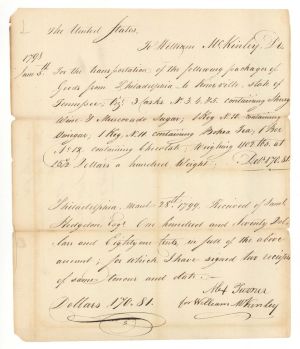 The United States,
To William McKinley Dr.
1798
June 5th. For the transportation of the following packages of
Goods from Philadelphia to Knoxville, State of
Tennessee. Viz 3 Casks No 3. 4. & 5. containing Sherry
Wine & Muscovado Sugar; 1 Keg N. 11. containing
Vinegar, 1 Keg N. 11 containing Bohea Tea; 1 Box
No 12. containing Chocolate; Weighing 1102 lbs. at
Dollars a hundred Weight. Dolls 170. 81.
Philadelphia March 28th, 1799. Received of Saml
Hodgdon Esqr. One hundred and Seventy Dol-
lars and Eighty one Cents, in full of the above
account; for which I have signed two receipts
of same tenour and date.
Alexr Turner
Dollars 170. 81. for William McKinley